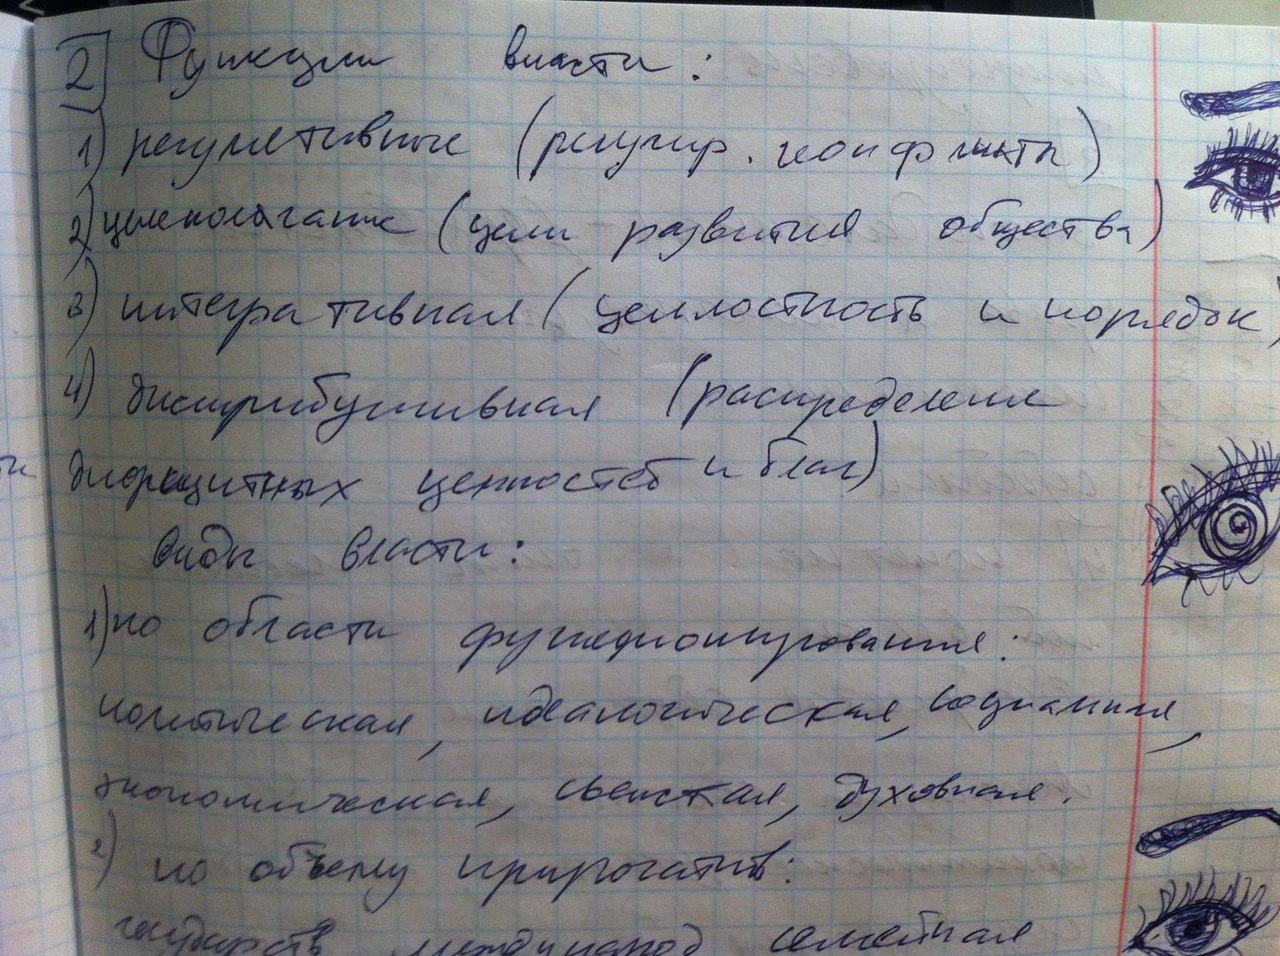 2 Функции власти:
1) регулятивные (регулир. конфликты)
2) целеполагание (цели развития общества)
3) интегративная (целлостность и порядок)
4) дистрибутивная (распределение
дифицитных ценностей и благ)
виды власти:
1) по области функционирования:
политическая, идеалогическая, социальная,
экономическая, светская, духовная.
2) по объему прирогатив:
государств международ семейная